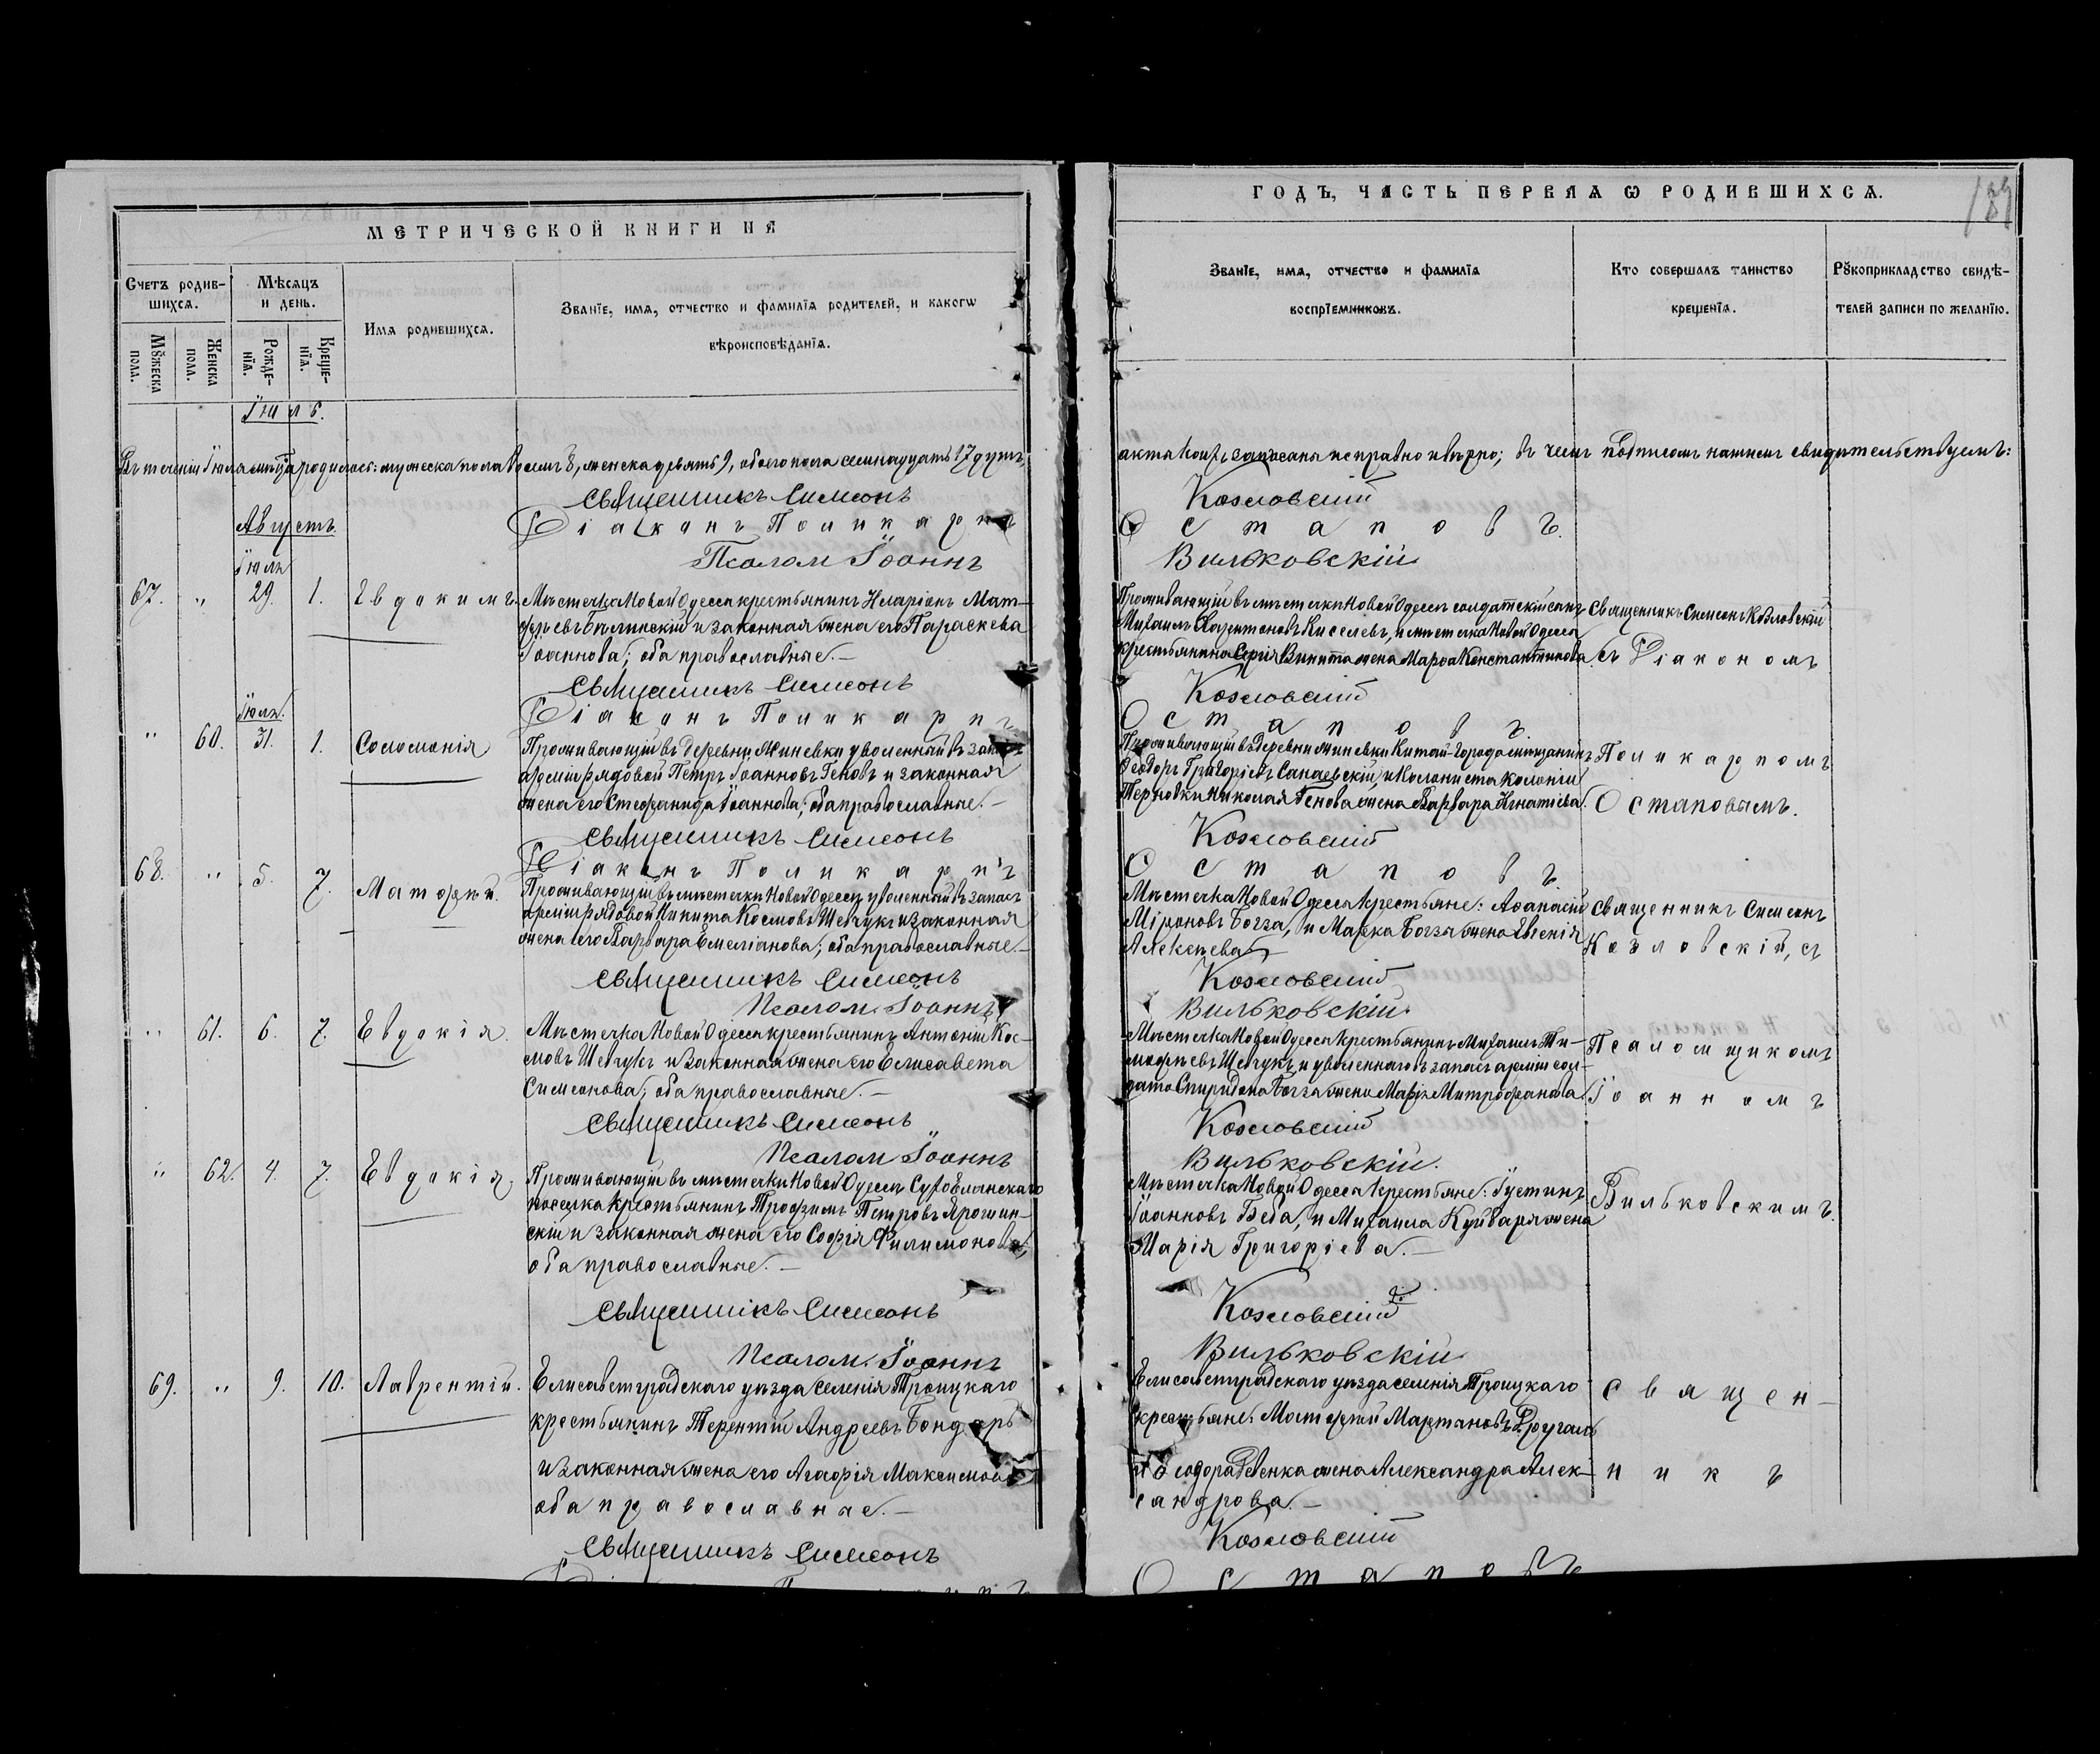 МЕТРИЧЕСКОЙ КНИГИ НА
Счетъ родив-
шихсѧ.
Мѣсѧцъ
и день.
Имѧ родившихсѧ.
Званїе, имѧ, отчество и фамилїѧ родителей, и какогѡ
вѣроисповѣданїѧ.
Мꙋжеска
пола.
Женска
пола.
Рожде-
нїѧ.
Креще-
нїѧ.
Іюль.
Въ теченіи Іюля мѣсяца родилось: мужеска пола восемь 8, женска девять 9, обоего пола семнадцать 17 душъ,
Священникъ Симеонъ
Діаконъ Поликарпъ
Псалом Іоаннъ
Августъ.
Іюль
67. " 29. 1. Евдокимъ.
Мѣстечка Новой Одесса крестьянинъ Иларіонъ Мат-
фѣевъ Балинскій и законная жена его Параскева
Іоаннова; оба православные.—
Священникъ Симеонъ
Діаконъ Поликарпъ
Іюль.
" 60. 31. 1. Соломонія
Проживающій въ деревни Миневки уволенный въ запасъ
арміи рядовой Петръ Іоанновъ Геновъ и законная
жена его Стефанида Іоаннова; оба православные.—
Священникъ Симеонъ
Діаконъ Поликарпъ
68. " 5. 7. Матфѣй.
Проживающій въ мѣстечки Новой Одессѣ уволенный въ запасъ
арміи рядовой Никита Космовъ Шевчукъ и законная
жена его Варвара Емеліанова; оба православные.—
Священникъ Симеонъ
Псалом. Іоаннъ
" 61. 6. 7. Евдокія.
Мѣстечка Новой Одесса крестьянинъ Антоній Кос-
мовъ Шевчукъ и законная жена его Елисавета
Симеонова; оба православные.—
Священникъ Симеонъ
Псалом Іоаннъ
" 62. 4. 7. Евдокія.
Проживающій въ мѣстечки Новой Одессѣ Сухо Еланскаго
поселка крестьянинъ Трофимъ Петровъ Ярошин-
скій и законная жена его Софія Филимонова;
оба православные.—
Священникъ Симеонъ
Псалом. Іоаннъ
69. " 9. 10. Лаврентій.
Елисаветградскаго уѣзда селенія Троицкаго
крестьянинъ Терентій Андреевъ Бондарь
и законная жена его Агафія Максимова
оба православные.—
Священникъ Симеонъ
ГОДЪ, ЧАСТЬ ПЕРВАѦ Ѡ РОДИВШИХСѦ.
189
Званїе, имѧ, отчество и фамилїѧ
воспрїемниковъ.
Кто совершалъ таинство
крещенїѧ.
Рꙋкоприкладство свидѣ-
телей записи по желанїю.
акта коихъ записаны исправно и вѣрно; въ чемъ подписомъ нашимъ свидѣтельствуемъ:
Козловскій
Остаповъ.
Вильковскій
Проживающій въ мѣстечки Новой Одессѣ солдатскій сынъ
Михаилъ Харитоновъ Киселевъ, и мѣстечка Новой Одесса
крестьянина Сергія Винита жена Марѳа Константинова.
Священникъ Симеонъ Козловскій
съ Діакономъ
Козловскій
Остаповъ
Проживающій въ деревни Миневки Китай-города мѣщанинъ
Ѳеодоръ Григорьевъ Санаевскій, и колониста колоніи
Терновки Николая Генова жена Варвара Игнатіева.
Поликарпомъ
Остаповымъ.
Козловскій
Остаповъ
Мѣстечка Новой Одесса крестьяне: Аѳанасій
Міроновъ Богза, и Марка Богзы жена Евгенія
Алексѣева.
Священникъ Симеонъ
Козловскій, съ
Козловскій
Вильковскій.
Мѣстечка Новой Одесса крестьянинъ Михаилъ Ти-
мофѣевъ Шевчукъ, и уволеннаго въ запасъ арміи сол-
дата Спиридона Богзы жена Марія Митрофанова.
Псаломщикомъ
Іоанномъ
Козловскій
Вильковскій.
Мѣстечка Новой Одесса крестьяне: Іустинъ
Іоанновъ Беба, и Михаила Куйбаря жена
Марія Григоріева.—
Вильковскимъ.
Козловскій
Вильковскій
Елисаветградскаго уѣзда селенія Троицкаго
крестьяне: Матфей Мартиновъ Другаль
и Ѳеодора Ревенка жена Александра Алек-
сандрова.—
Священ-
никъ
Козловскій
Остаповъ